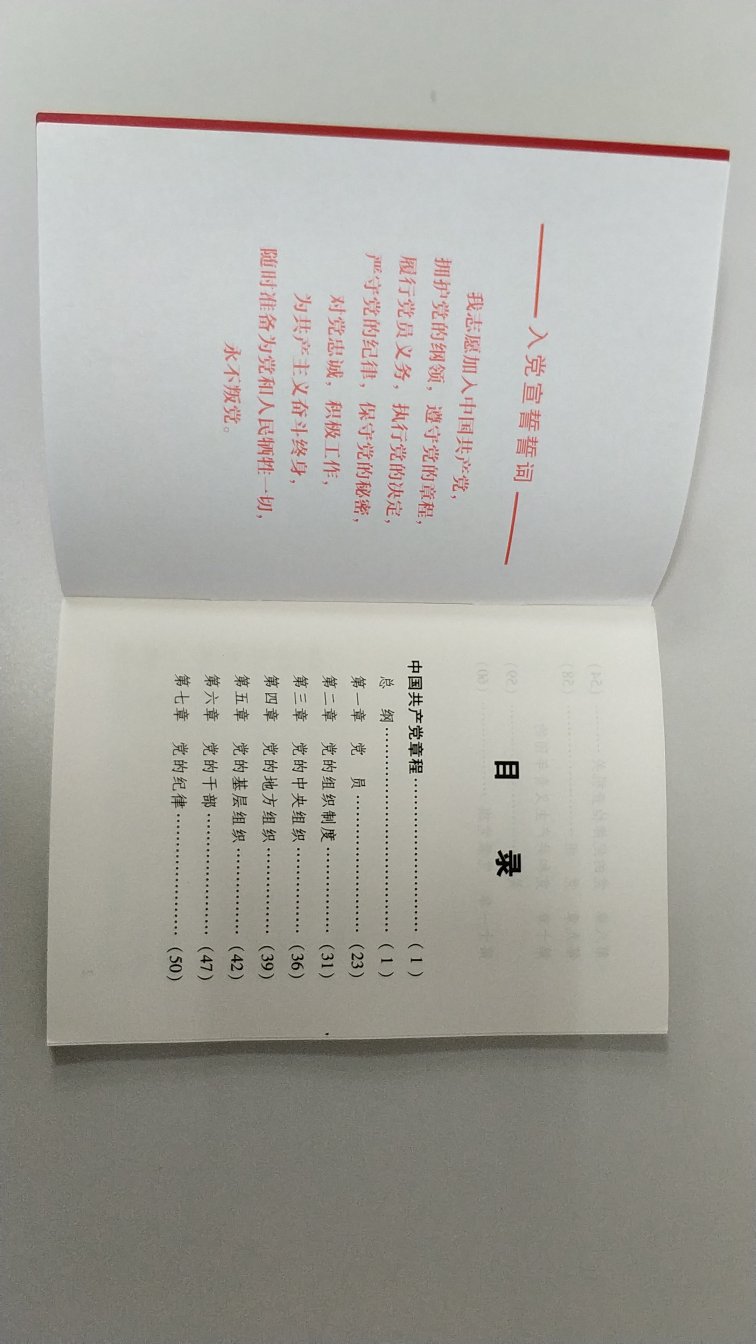 入党宣誓誓词
我志愿加入中国共产党，
拥护党的纲领，遵守党的章程，
履行党员义务，执行党的决定，
严守党的纪律，保守党的秘密，
对党忠诚，积极工作，
为共产主义奋斗终身，
随时准备为党和人民牺牲一切，
永不叛党。
目 录
中国共产党章程……………………（1）
总 纲……………………………（1）
第一章 党 员……………………（23）
第二章 党的组织制度……………（31）
第三章 党的中央组织……………（36）
第四章 党的地方组织……………（39）
第五章 党的基层组织……………（42）
第六章 党的干部…………………（47）
第七章 党的纪律…………………（50）